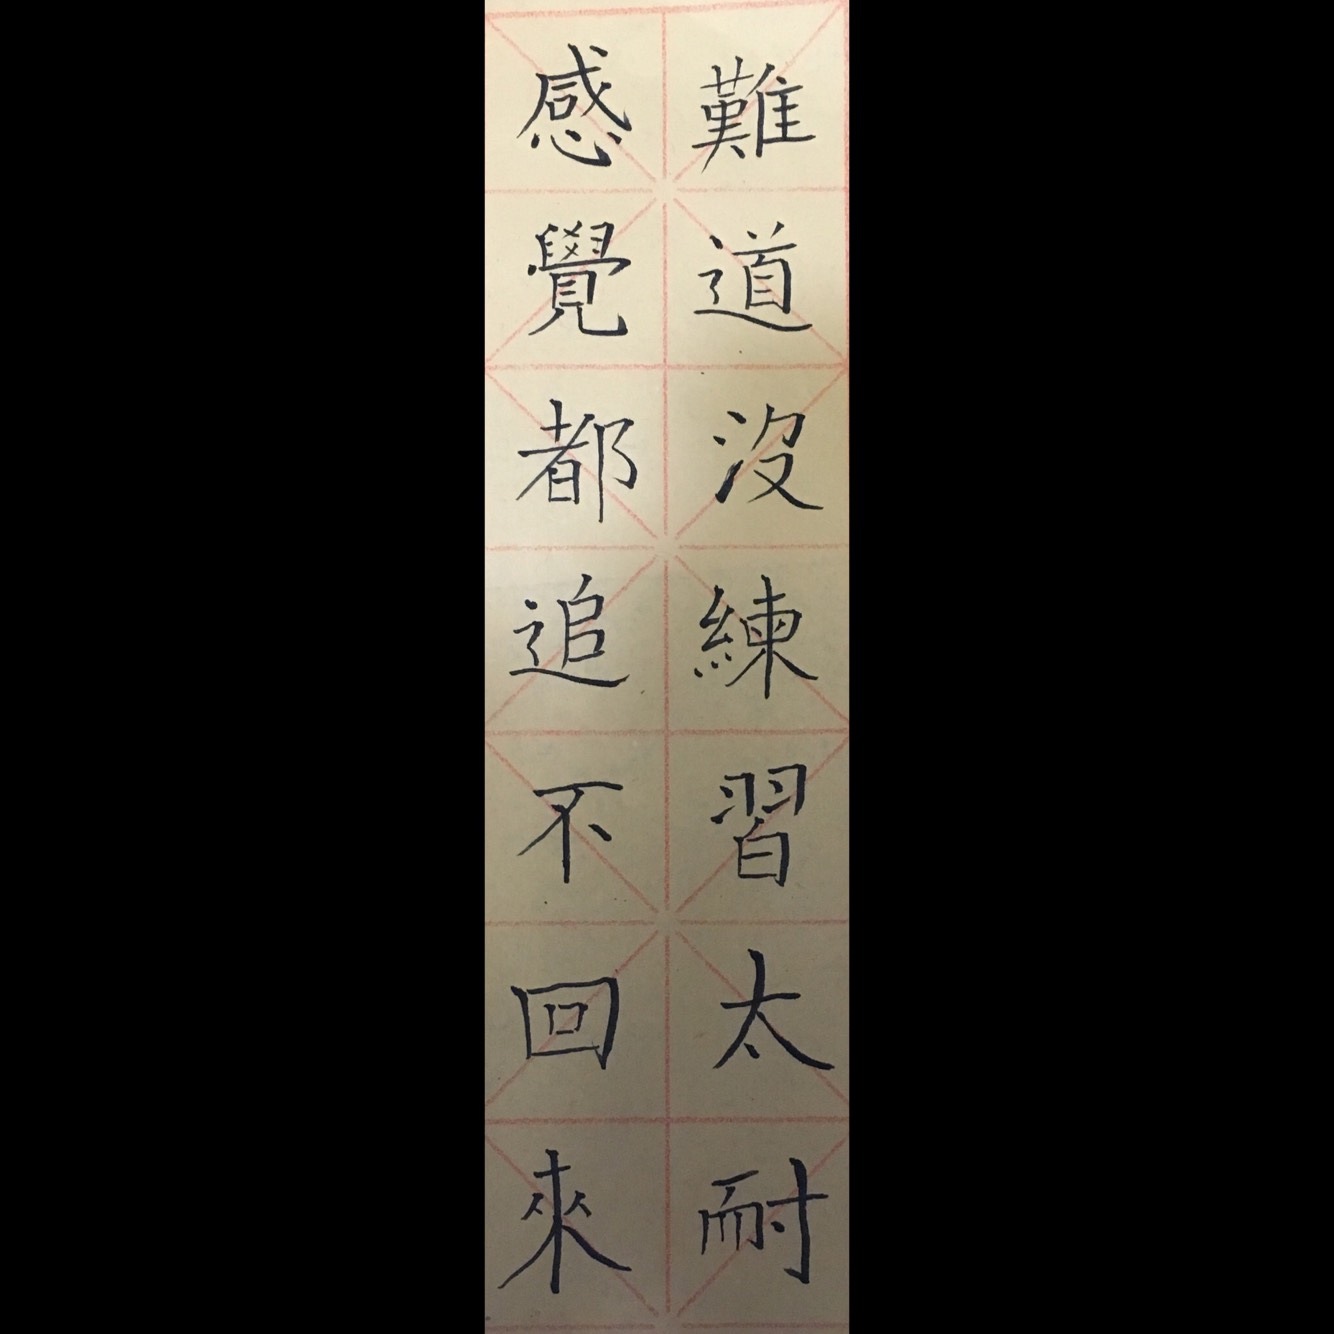 難道沒練習太耐
感覺都追不回來